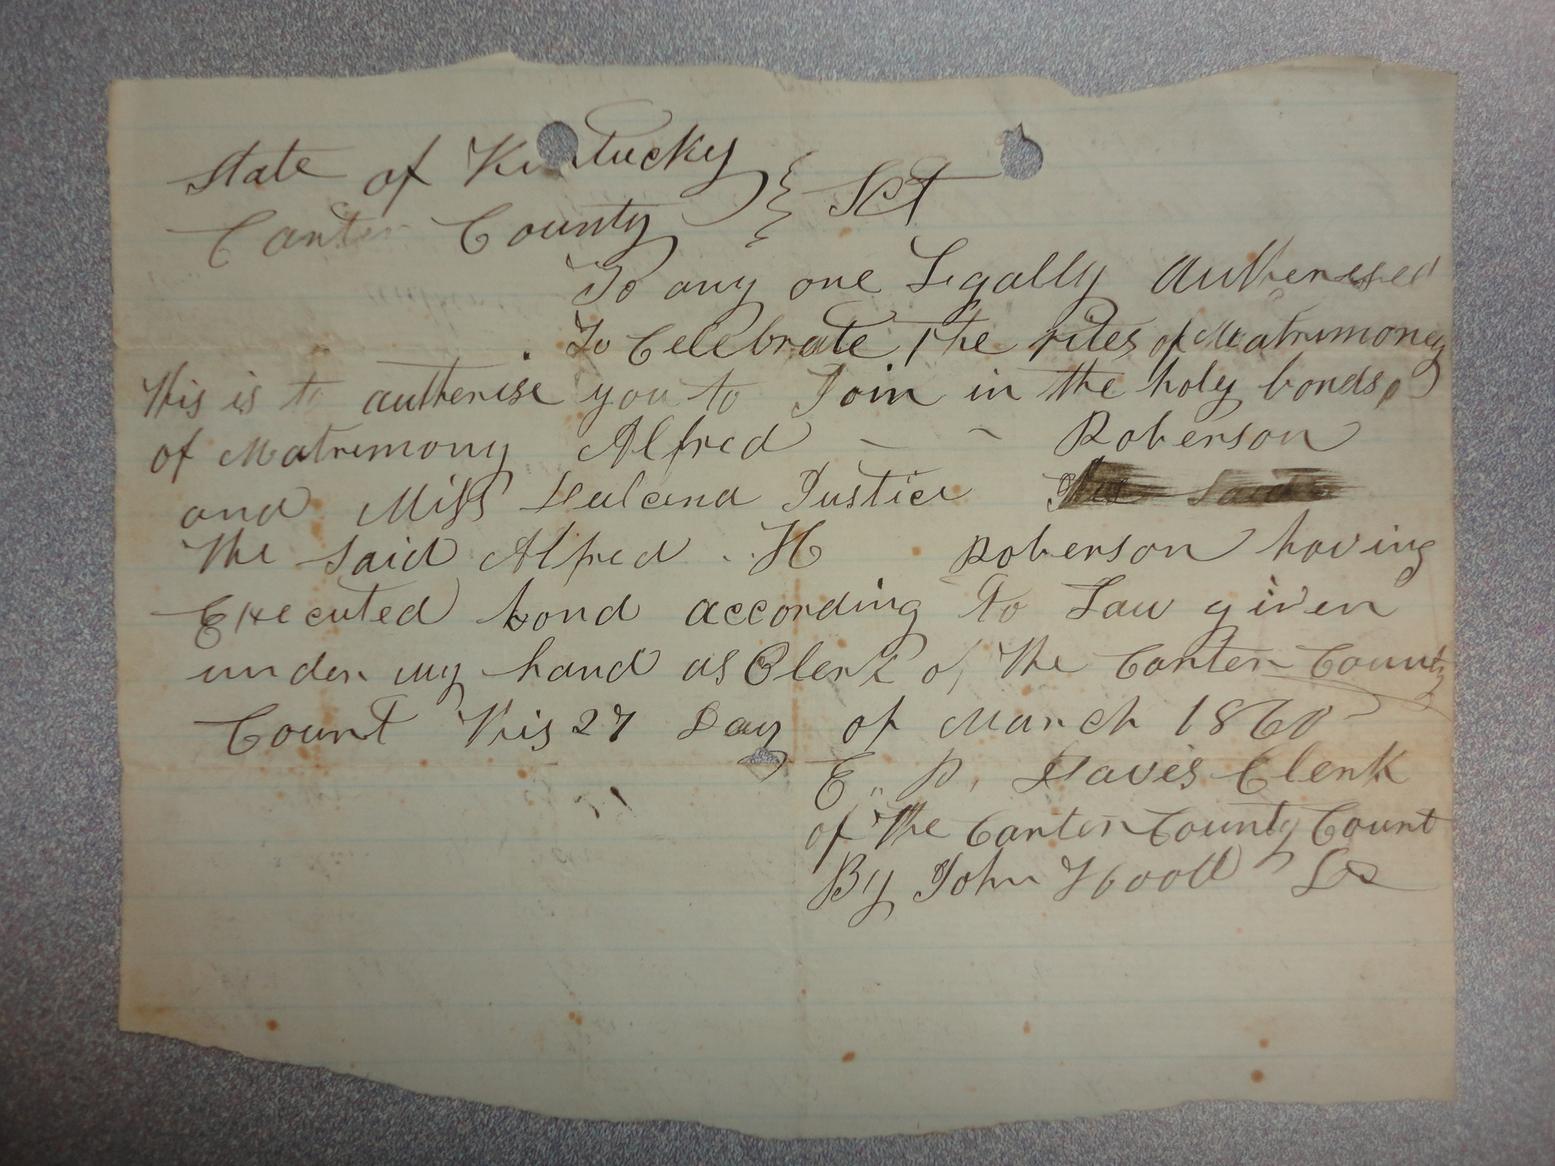 State of Kentucky }
Carter County } Sct
To any one Legally Autherised
To Celebrate the rites of Matrimoney
This is to autherise you to Join in the holy bonds
of Matrimony Alfred - - Roberson
and Miss Dulcena Justice The Said
The Said Alfred . H Roberson having
Executed bond according to Law given
under my hand as Clerk of the Carter County
Court This 27 Day of March 1860
E,, D, Davis Clerk
of the Carter County Court
By John Wood